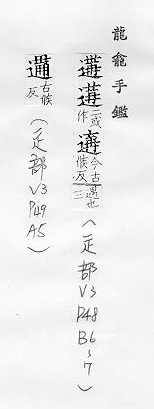 龍龕手鑑
二或作遘今古候反遇也三(辵部V3P48B6~7)
古候反(辵部V3P49A5)